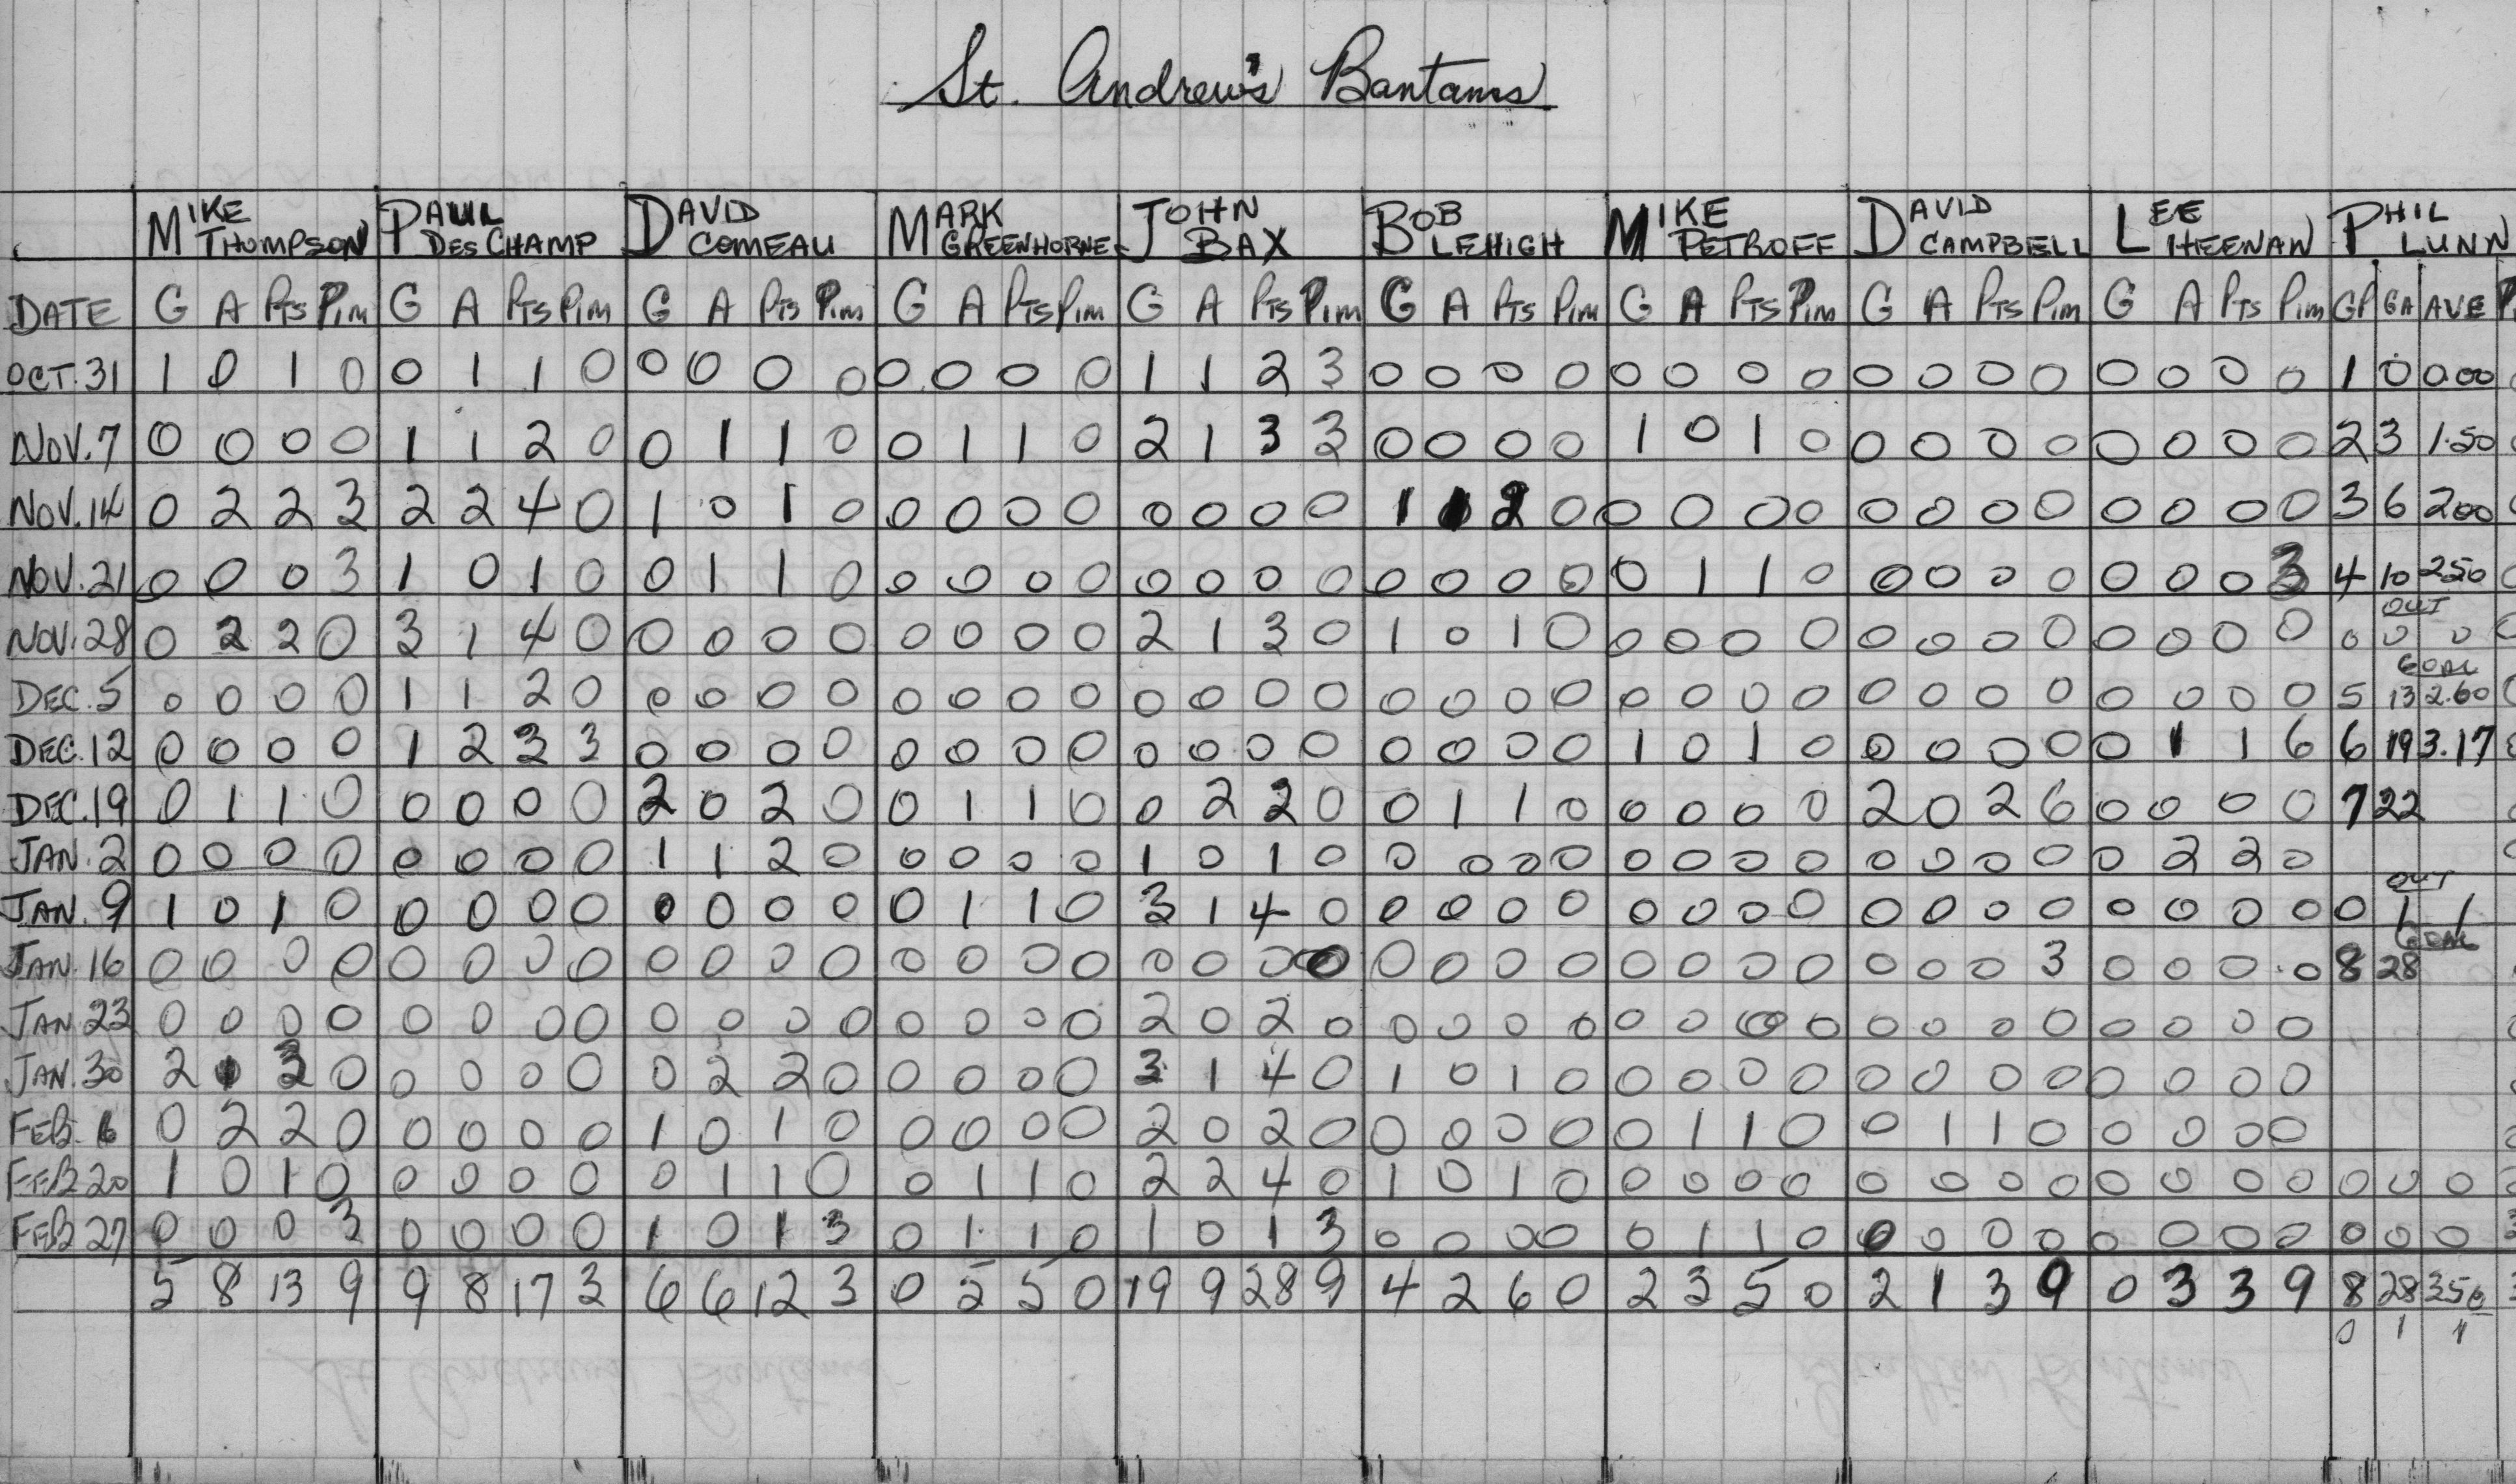 St. Andrew's Bantams
MIKE THOMPSON PAUL DESCHAMP DAVID COMEAU MARK GREENHORNE JOHN BAX BOB LEHIGH MIKE PETROFF DAVID CAMPBELL LEE HEENAN PHIL LUNN
DATE G A PTS PIM G A PTS PIM G A PTS PIM G A PTS PIM G A PTS PIM G A PTS PIM G A PTS PIM G A PTS PIM G A PTS PIM GP GA AVE
OCT. 31 1 0 1 0 0 1 1 0 0 0 0 0 0 0 0 0 1 1 2 3 0 0 0 0 0 0 0 0 0 0 0 0 0 0 0 0 1 0 0.00
NOV. 7 0 0 0 0 1 1 2 0 0 1 1 0 0 1 1 0 2 1 3 3 0 0 0 0 1 0 1 0 0 0 0 0 0 0 0 0 2 3 1.50
NOV. 14 0 2 2 3 2 2 4 0 1 0 1 0 0 0 0 0 0 0 0 0 1 1 2 0 0 0 0 0 0 0 0 0 0 0 0 0 3 6 200
NOV. 21 0 0 0 3 1 0 1 0 0 1 1 0 0 0 0 0 0 0 0 0 0 0 0 0 0 1 1 0 0 0 0 0 0 0 0 3 4 10 250
NOV. 28 0 2 2 0 3 1 4 0 0 0 0 0 0 0 0 0 2 1 3 0 1 0 1 0 0 0 0 0 0 0 0 0 0 0 0 0 OUT 0 0 0
DEC. 5 0 0 0 0 1 1 2 0 0 0 0 0 0 0 0 0 0 0 0 0 0 0 0 0 0 0 0 0 0 0 0 0 0 0 0 0 GOAL 5 13 2.60
DEC. 12 0 0 0 0 1 2 3 3 0 0 0 0 0 0 0 0 0 0 0 0 0 0 0 0 1 0 1 0 0 0 0 0 0 1 1 6 6 19 3.17
DEC. 19 0 1 1 0 0 0 0 0 2 0 2 0 0 1 1 0 0 2 2 0 0 1 1 0 0 0 0 0 2 0 2 6 0 0 0 0 7 22
JAN. 2 0 0 0 0 0 0 0 0 1 1 2 0 0 0 0 0 1 0 1 0 0 0 0 0 0 0 0 0 0 0 0 0 0 2 2 0
JAN. 9 1 0 1 0 0 0 0 0 0 0 0 0 0 1 1 0 3 1 4 0 0 0 0 0 0 0 0 0 0 0 0 0 0 0 0 0 OUT 0 1 1
JAN. 16 0 0 0 0 0 0 0 0 0 0 0 0 0 0 0 0 0 0 0 0 0 0 0 0 0 0 0 0 0 0 0 3 0 0 0 0 GOAL 8 28
JAN. 23 0 0 0 0 0 0 0 0 0 0 0 0 0 0 0 0 2 0 2 0 0 0 0 0 0 0 0 0 0 0 0 0 0 0 0 0
JAN. 30 2 1 3 0 0 0 0 0 0 2 2 0 0 0 0 0 3 1 4 0 1 0 1 0 0 0 0 0 0 0 0 0 0 0 0 0
FEB. 6 0 2 2 0 0 0 0 0 1 0 1 0 0 0 0 0 2 0 2 0 0 0 0 0 0 1 1 0 0 1 1 0 0 0 0 0
FEB 20 1 0 1 0 0 0 0 0 0 1 1 0 0 1 1 0 2 2 4 0 1 0 1 0 0 0 0 0 0 0 0 0 0 0 0 0 0 0 0
FEB 27 0 0 0 3 0 0 0 0 1 0 1 3 0 1 1 0 1 0 1 3 0 0 0 0 0 1 1 0 0 0 0 0 0 0 0 0 0 0 0
5 8 13 9 9 8 17 3 6 6 12 3 0 5 5 0 19 9 28 9 4 2 6 0 2 3 5 0 2 1 3 9 0 3 3 9 8 28 350
0 1 1